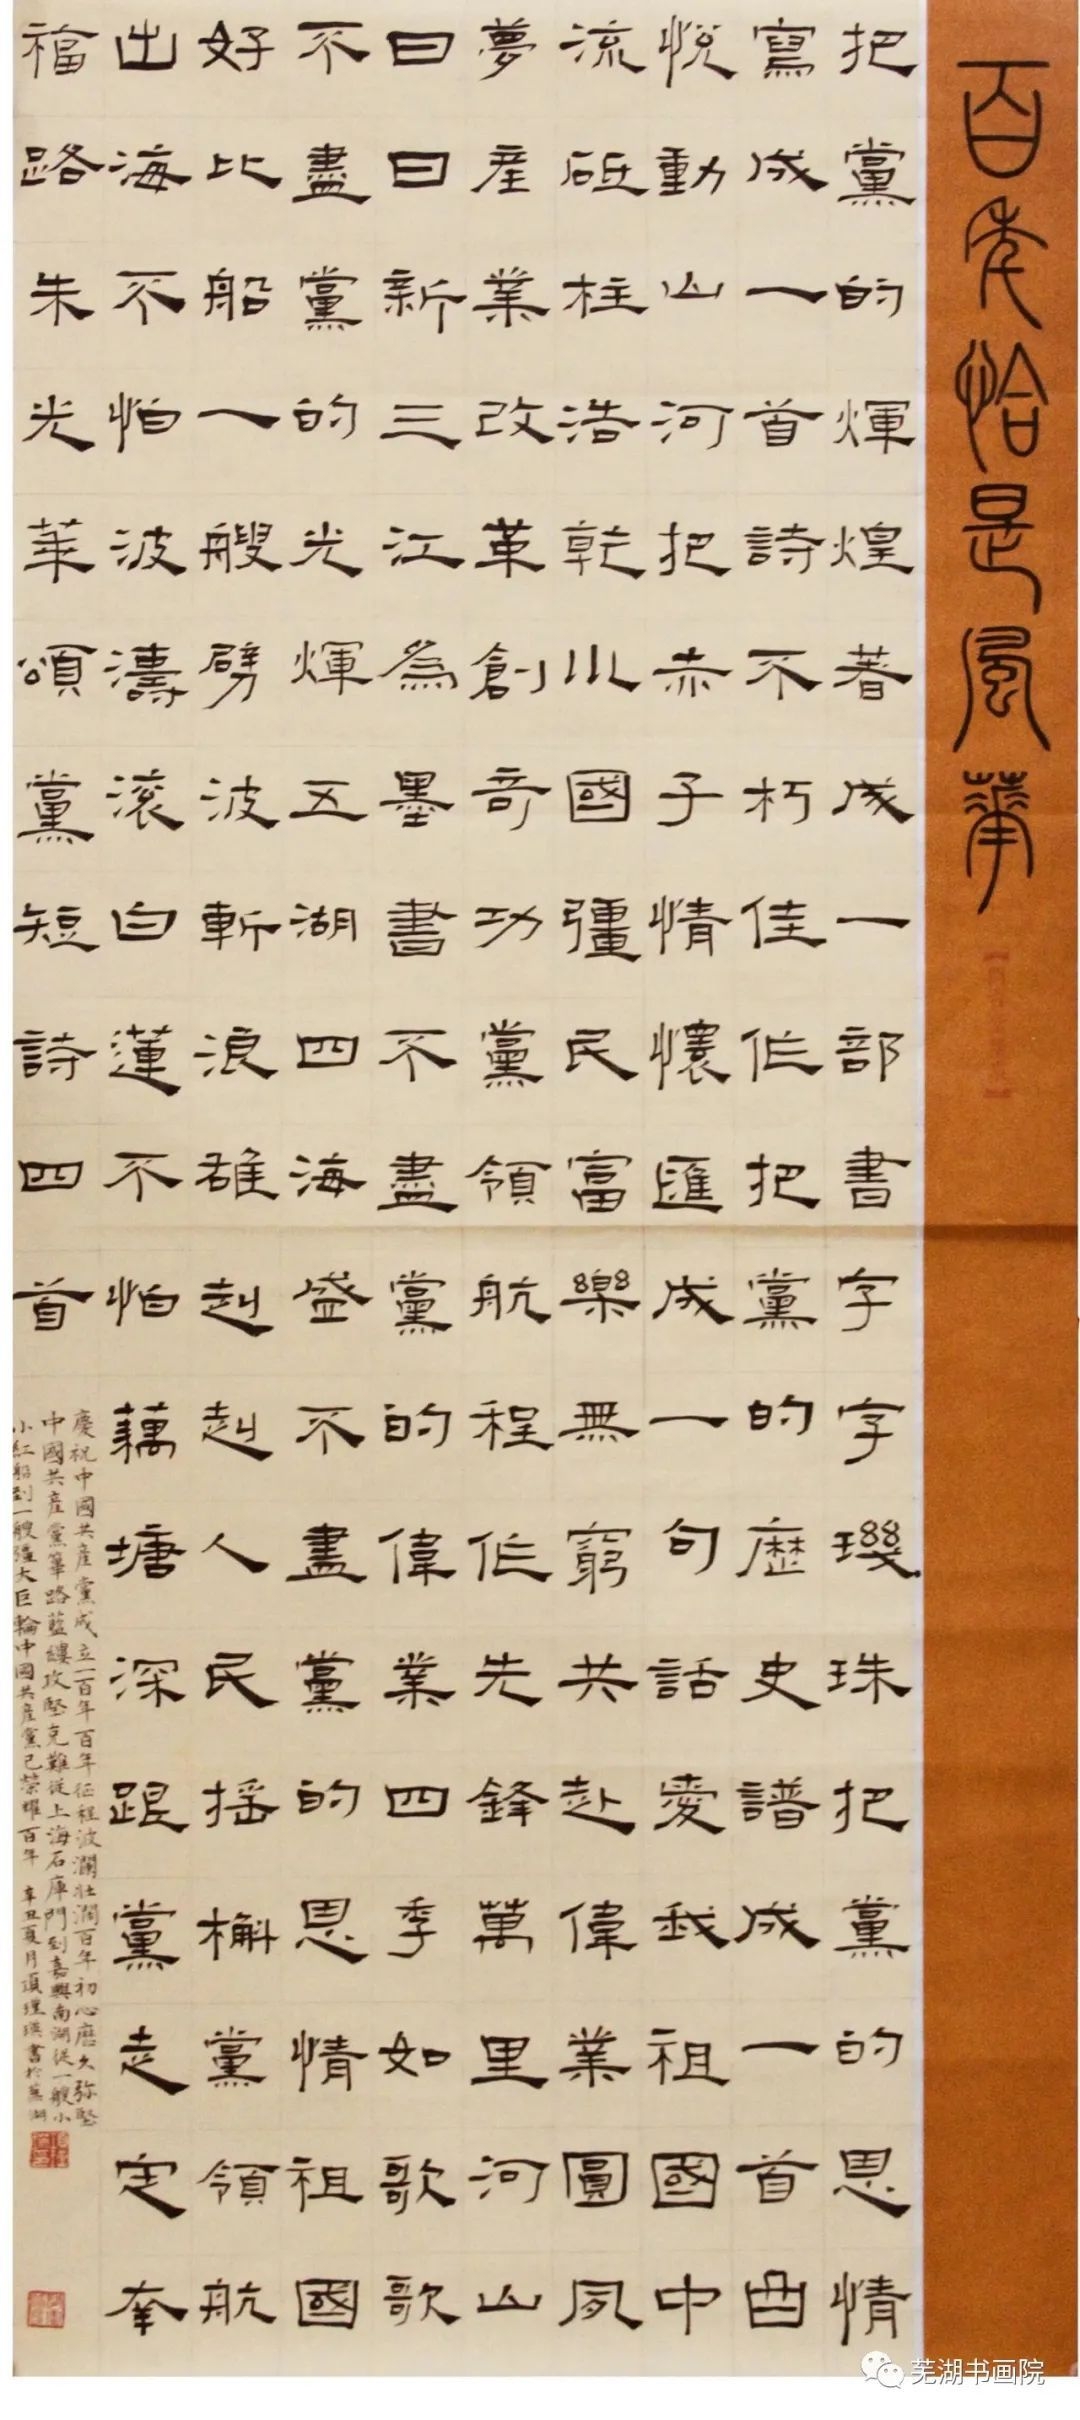 百年恰是風華
把黨的煇煌著成一部書字字璣珠把黨的恩情
寫成一首詩不朽佳作把黨的歷史譜成一首曲
悅動山河把赤子情懷匯成一句話愛我祖國中
流砥柱浩乾川國彊民富樂無窮共赴偉業圓夙
夢產業改革創奇功黨領航程作先鋒萬里河山
日日新三江為墨書不盡黨的偉業四季如歌歌
不盡黨的光煇五湖四海盛不盡黨的恩情祖國
好比船一艘劈波斬浪雄赳赳人民搖櫓黨領航
出海不怕波濤滾白蓮不怕藕塘深跟黨走定幸
福路朱光華頌黨短詩四首
慶祝中國共產黨成立一百年百年征程波瀾壯濶百年初心歷久弥堅
中國共產黨篳路藍縷攻堅克難從上海石庫門到嘉興南湖從一艘小
小紅船到一艘強大巨輪中國共產黨已榮耀百年 辛丑夏月項瑾瑛書於蕪湖
芜湖书画院